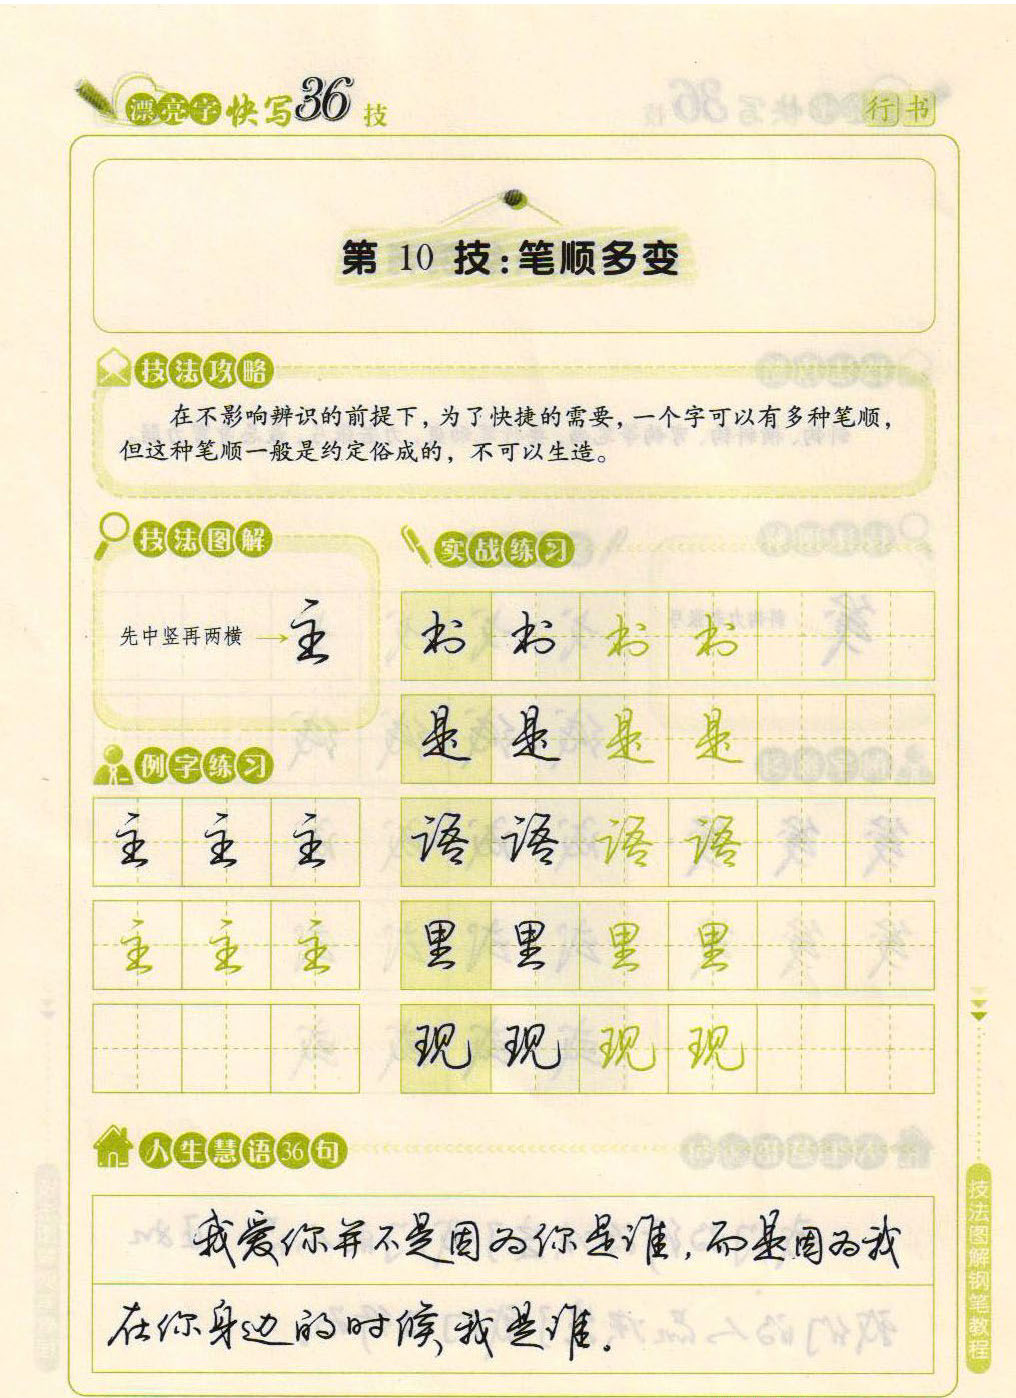 漂亮字快写36技
行书
第 10 技：笔顺多变
技法攻略
在不影响辨识的前提下，为了快捷的需要，一个字可以有多种笔顺，
但这种笔顺一般是约定俗成的，不可以生造。
技法图解
先中竖再两横 → 主
实战练习
是 是 是 是
语 语 语 语
里 里 里 里
现 现 现 现
例字练习
主 主 主
主 主 主
人生慧语36句
我爱你并不是因为你是谁，而是因为我
在你身边的时候我是谁。
技法图解钢笔教程